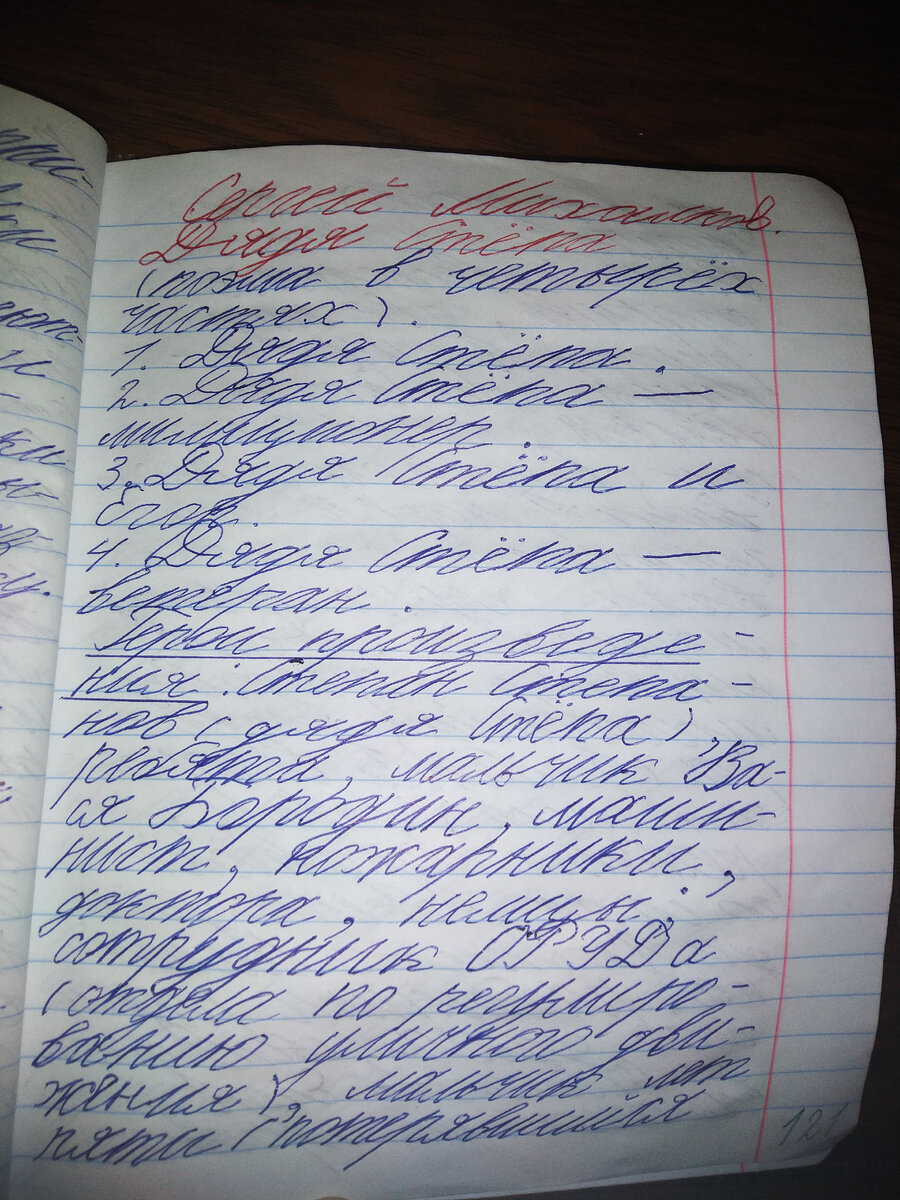 Сергей Михалков.
Дядя Стёпа
(поэма в четырёх
частях).
1. Дядя Стёпа.
2. Дядя Стёпа —
милиционер.
3. Дядя Стёпа и
Егор.
4. Дядя Стёпа —
ветеран.
Герои произведе-
ния: Степан Степа-
нов (дядя Стёпа),
ребята, мальчик Ва-
ся Бородин, маши-
нист, пожарники,
доктора, немцы;
сотрудник ОРУДа
(отдела по регулиро-
ванию уличного дви-
жения), мальчик лет
пяти (потерявшийся
121